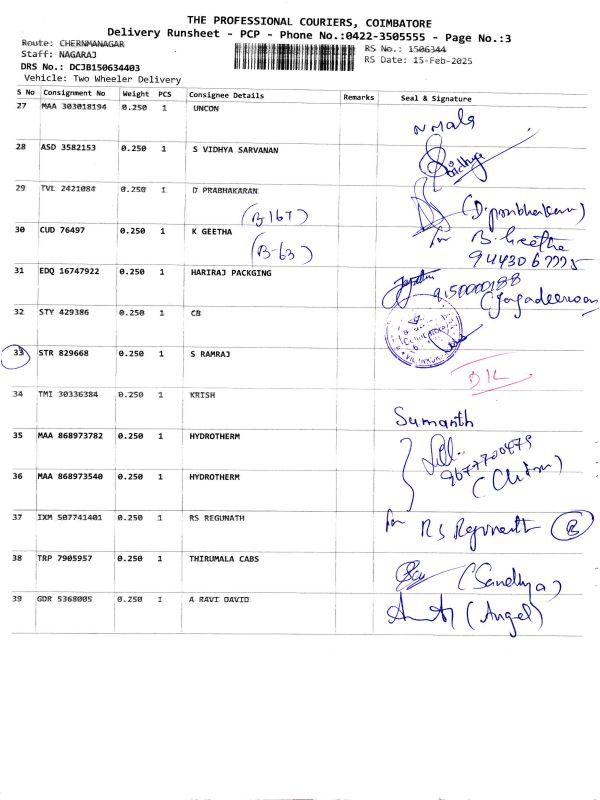 THE PROFESSIONAL COURIERS, COIMBATORE
Delivery Runsheet - PCP - Phone No.:0422-3505555 - Page No.:3
Route: CHERNMANAGAR
RS No.: 1506344
Staff: NAGARAJ
RS Date: 15-Feb-2025
DRS No.: DCJB150634403
Vehicle: Two Wheeler Delivery
S No Consignment No Weight PCS Consignee Details Remarks Seal & Signature
27 MAA 303018194 0.250 1 UNCON
28 ASD 3582153 0.250 1 S VIDHYA SARVANAN
Vidhya
29 TVL 2421084 0.250 1 D PRABHAKARAN
(B 167)
30 CUD 76497 0.250 1 K GEETHA
for B. Geetha
(B-63)
31 EDQ 16747922 0.250 1 HARIRAJ PACKGING
9150000188
32 STY 429386 0.250 1 CB
33 STR 829668 0.250 1 S RAMRAJ
34 TMI 30336384 0.250 1 KRISH
Sumanth
35 MAA 868973782 0.250 1 HYDROTHERM
9677700479
36 MAA 868973540 0.250 1 HYDROTHERM
37 IXM 507741401 0.250 1 RS REGUNATH
for RS Regunath
38 TRP 7905957 0.250 1 THIRUMALA CABS
(Sandhya)
39 GDR 5368005 0.250 1 A RAVI DAVID
(Angel)